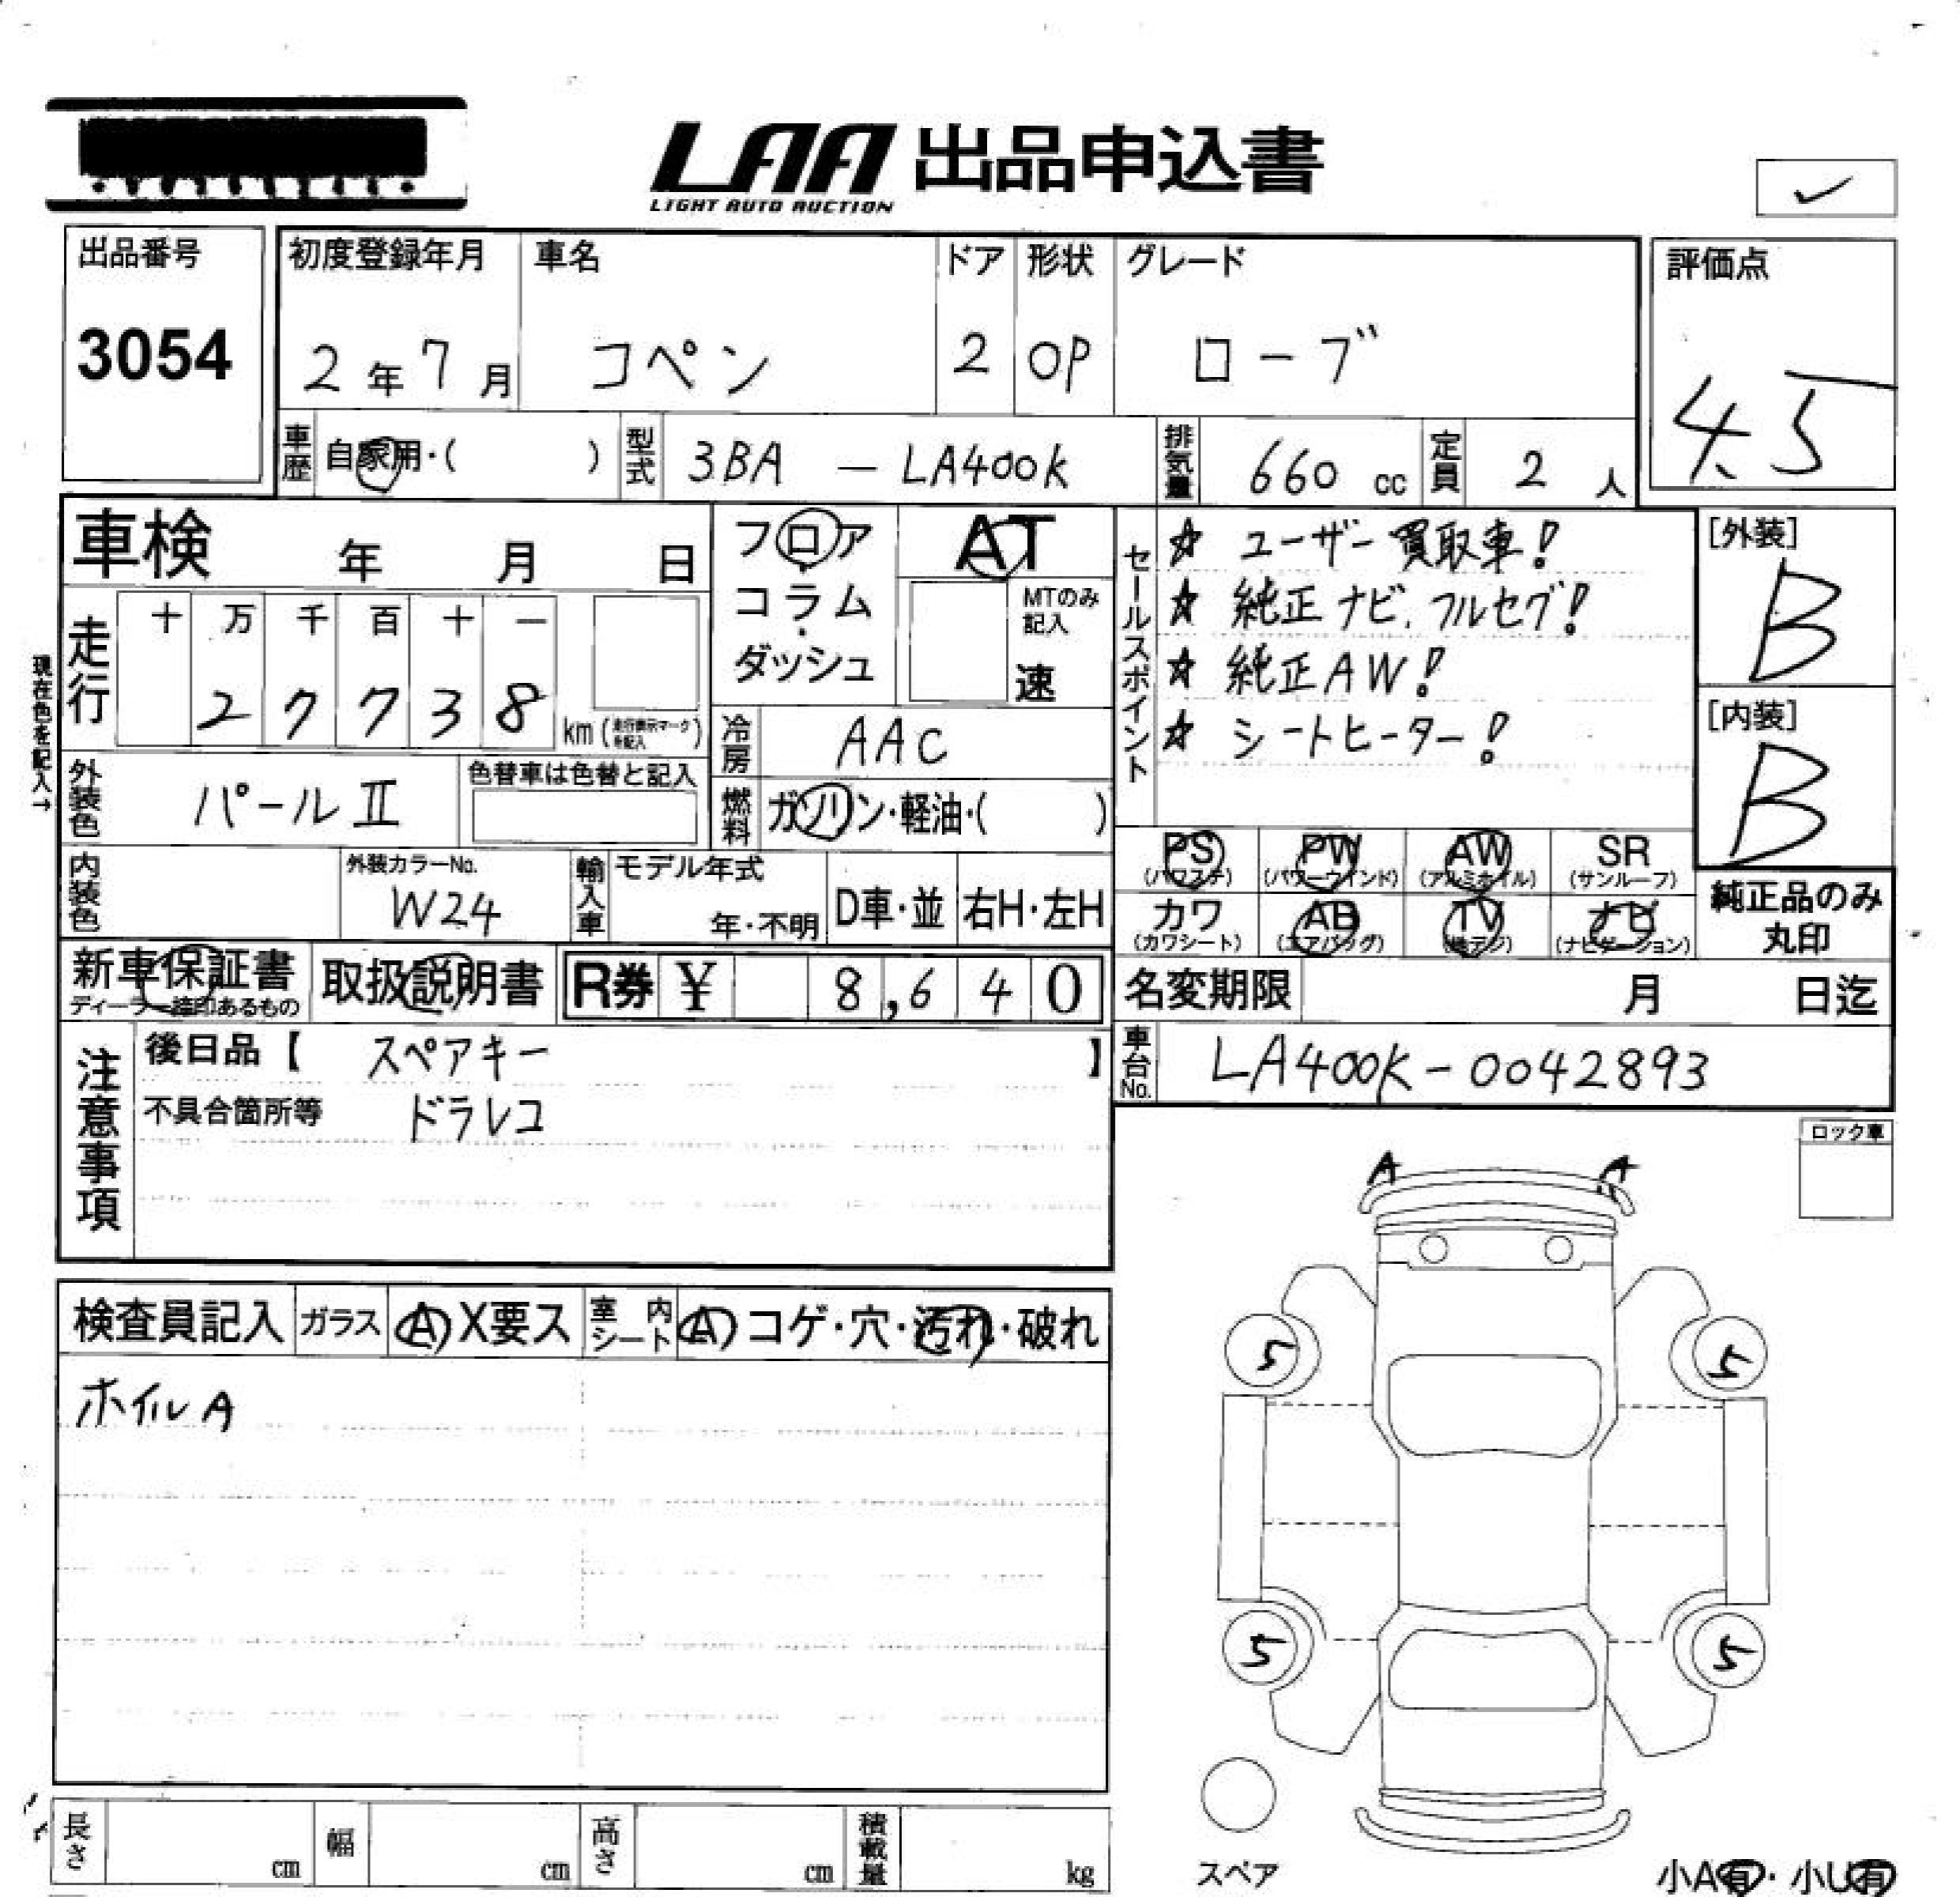 LAA 出品申込書
LIGHT AUTO AUCTION
✓
出品番号
3054
初度登録年月
2年7月
車名
コペン
ドア
2
形状
OP
グレード
ローブ
評価点
4.5
車歴 自家用・( )
型式 3BA — LA400K
排気量 660 cc
定員 2 人
車検 年 月 日
フロア・コラム・ダッシュ
AT
MTのみ記入
速
セールスポイント
☆ ユーザー買取車!
☆ 純正ナビ.フルセグ!
☆ 純正AW!
☆ シートヒーター!
[外装]
B
[内装]
B
現在色を記入→
走行
十 万 千 百 十 一
2 7 7 3 8
km (走行表示マークを記入)
冷房 AAC
燃料 ガソリン・軽油・( )
外装色 パールⅡ
色替車は色替と記入
内装色
外装カラーNo.
W24
輸入車
モデル年式
年・不明
D車・並
右H・左H
PS (パワステ)
PW (パワーウインド)
AW (アルミホイル)
SR (サンルーフ)
カワ (カワシート)
AB (エアバッグ)
TV (地デジ)
ナビ (ナビゲーション)
純正品のみ
丸印
新車保証書
取扱説明書
R券 ¥ 8,640
名変期限 月 日迄
車台No. LA400K-0042893
注意事項
後日品【 スペアキー 】
不具合箇所等 ドラレコ
ロック車
A A
検査員記入
ガラス A X要ス
室内シート A コゲ・穴・汚れ・破れ
ホイルA
5 5
5 5
スペア
長さ cm
幅 cm
高さ cm
積載量 kg
小A有・小U有